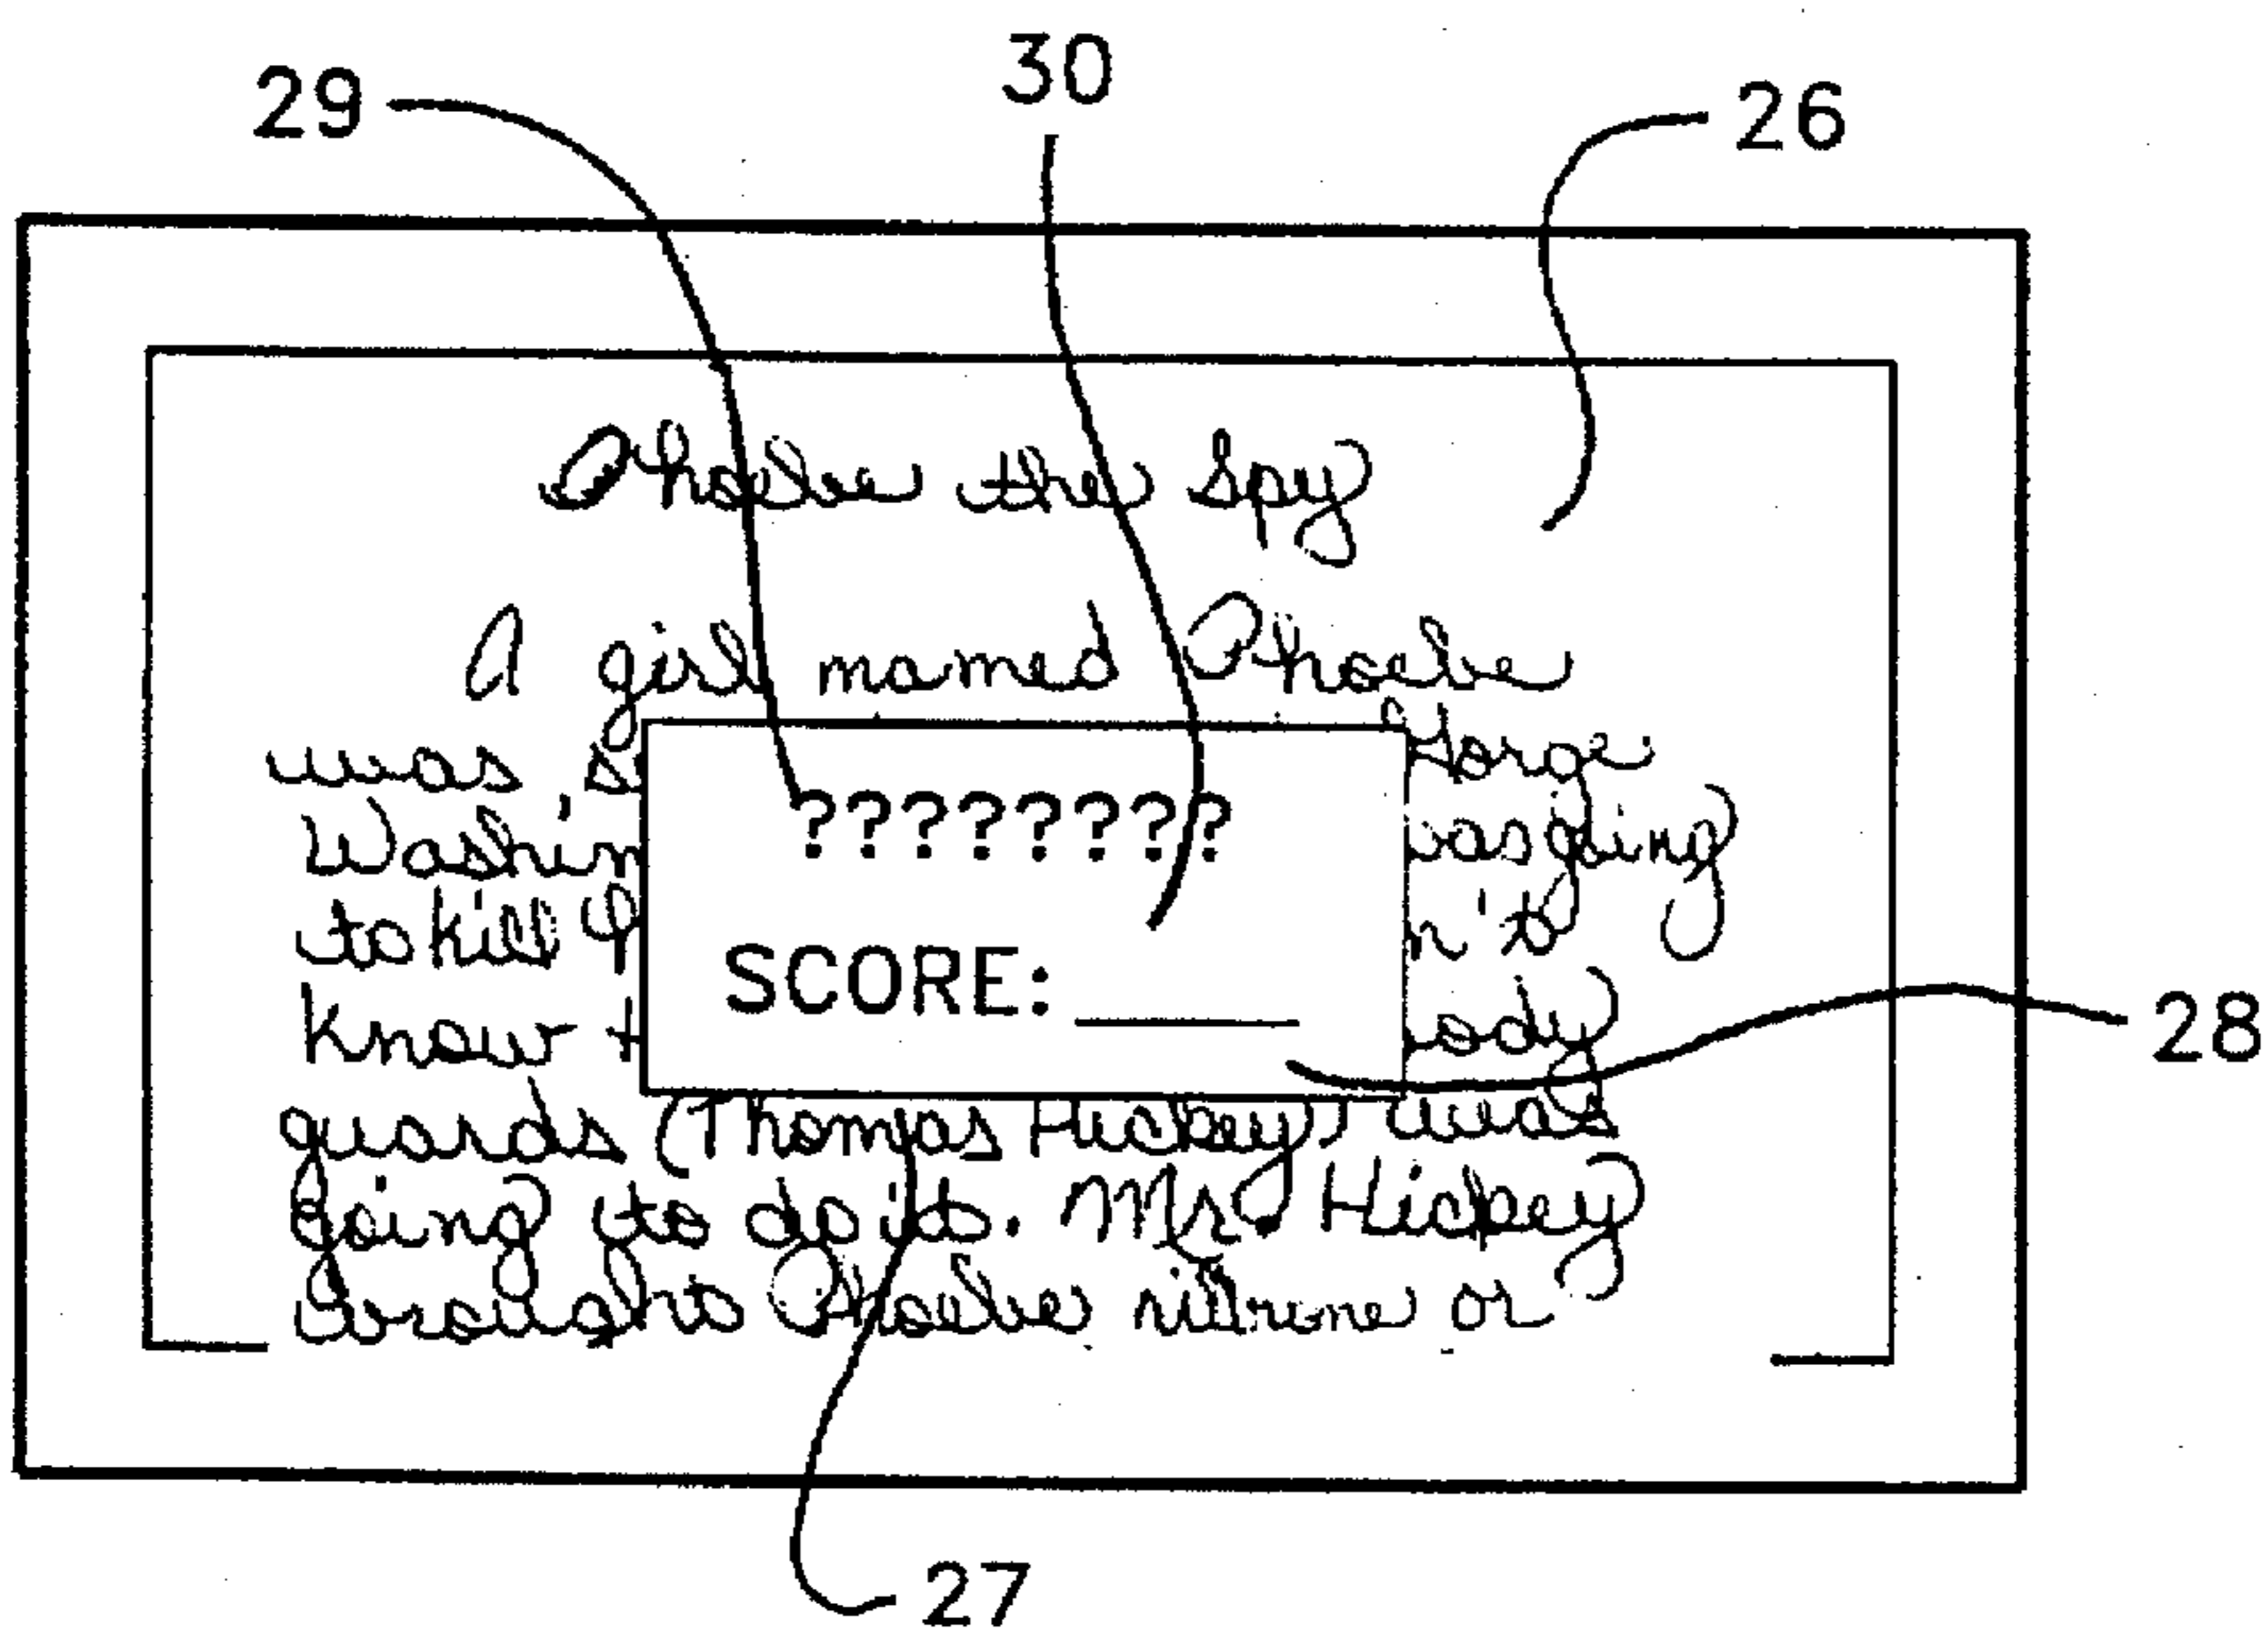 29
30
26
Phoebe the Spy
A girl named Phoebe
was
Washin
????????
going
to kill
SCORE:
Know
28
guards (Thomas Hickey) was
going to do it. Mr. Hickey
brought Phoebe or
27